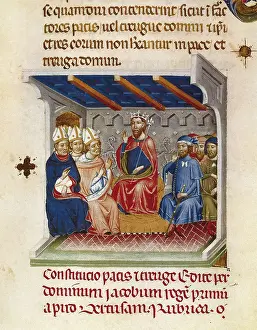 se quam don concenderint sicut i fac
tores pacis vel treugue domini vt ipi
et res eorum non hantur in pace et
treuga domini.
Constitucio pacis i treuge Edita per
dominum iacobum regem primum
apud Dertusam. Rubrica.